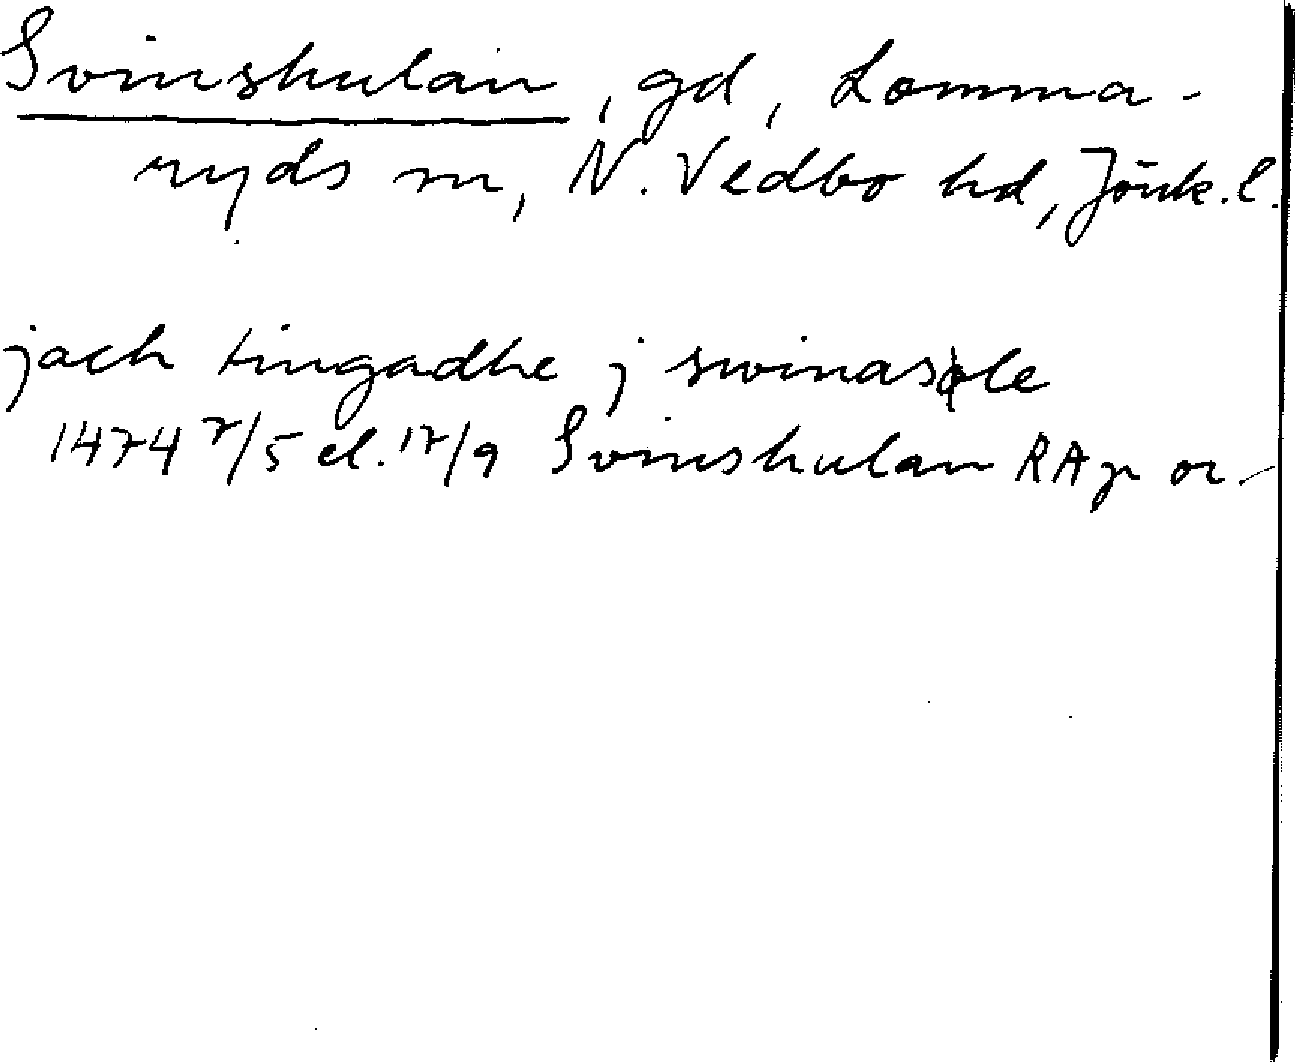 Svinshulan, gd, Lomma-
ryds sn, N. Vedbo hd, Jönk. l.
jach tingadhe j swinasole
1474 7/5 el. 17/9 Svinshulan RAp or.